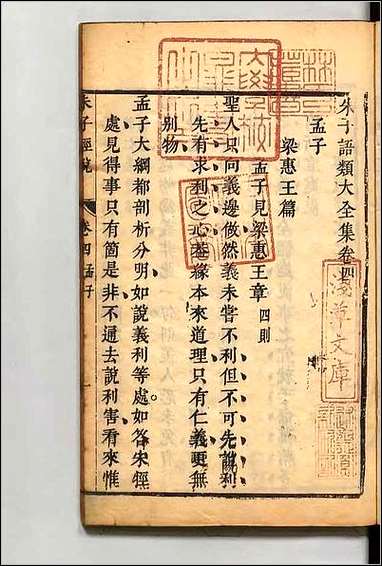 朱子語類大全集卷四
孟子
梁惠王篇
孟子見梁惠王章 四則
聖人只向義邊做然義未嘗不利但不可先說利
先有求利之心蓋緣本來道理只有仁義更無
別物
孟子大綱都剖析分明如說義利等處如答宋牼
處見得事只有箇是非不通去說利害看來惟
朱子經說
卷四 孟子
一
淺草文庫